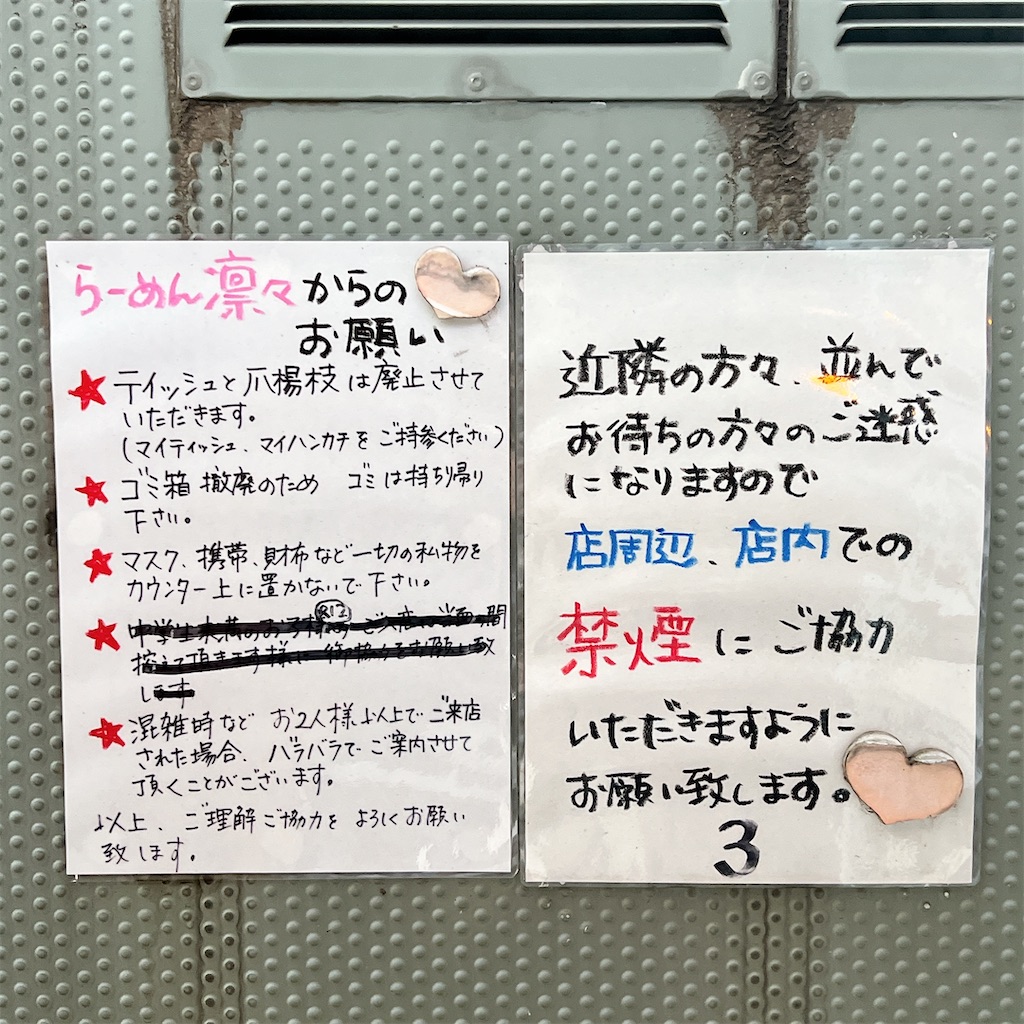 らーめん凛々からの
お願い
★ ティッシュと爪楊枝は廃止させて
いただきます。
(マイティッシュ、マイハンカチをご持参ください)
★ ゴミ箱撤廃のため ゴミは持ち帰り
下さい。
★ マスク、携帯、財布など一切の私物を
カウンター上に置かないで下さい。
★
★ 混雑時など お2人様以上でご来店
された場合、バラバラでご案内させて
頂くことがございます。
以上、ご理解ご協力をよろしくお願い
致します。
近隣の方々、並んで
お待ちの方々のご迷惑
になりますので
店周辺、店内での
禁煙にご協力
いただきますように
お願い致します。
3